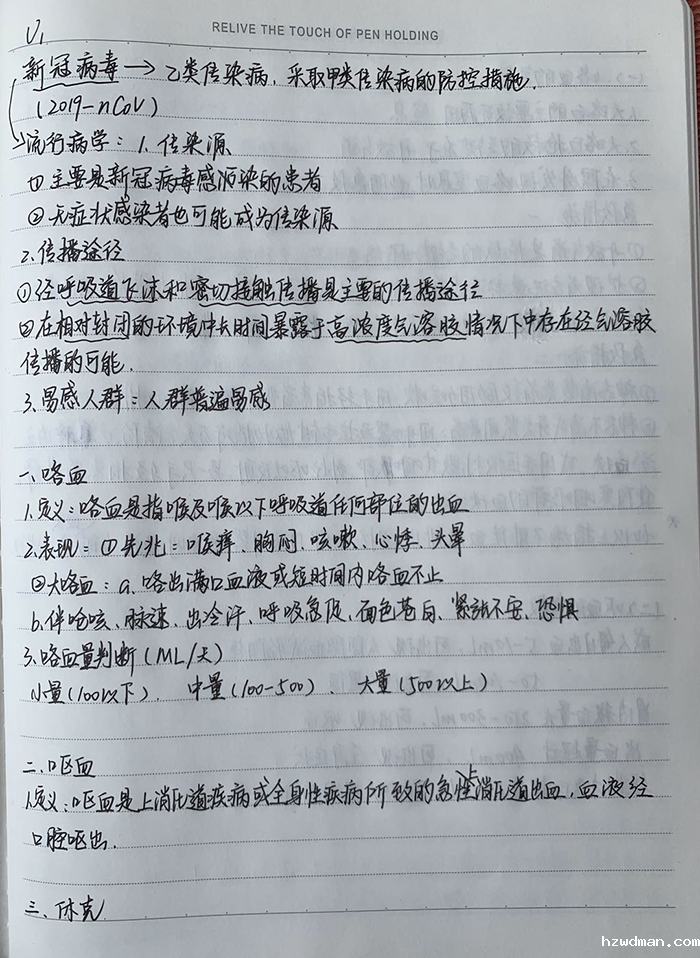 U₁
RELIVE THE TOUCH OF PEN HOLDING
新冠病毒→乙类传染病，采取甲类传染病的防控措施.
(2019-nCoV)
流行病学：1. 传染源
①主要是新冠病毒感染的患者
②无症状感染者也可能成为传染源
2. 传播途径
①经呼吸道飞沫和密切接触传播是主要的传播途径
②在相对封闭的环境中长时间暴露于高浓度气溶胶情况下中存在经气溶胶
传播的可能.
3. 易感人群：人群普遍易感
一、咯血
1. 定义：咯血是指喉及喉以下呼吸道任何部位的出血
2. 表现：①先兆：喉痒、胸闷、咳嗽、心悸、头晕
②大咯血：a. 咯出满口血液或短时间内咯血不止
b. 伴呛咳、脉速、出冷汗、呼吸急促、面色苍白、紧张不安、恐惧
3. 咯血量判断(ML/天)
小量(100以下)、 中量(100-500)、 大量(500以上)
二、呕血
1. 定义：呕血是上消化道疾病或全身性疾病所致的急性上消化道出血，血液经
口腔呕出.
三、休克
hzwdman.com